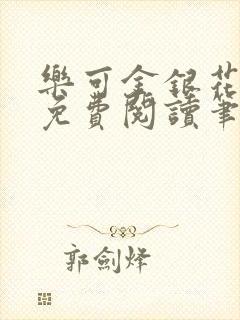 樂可金銀花
免費閱讀筆
郭劍烽